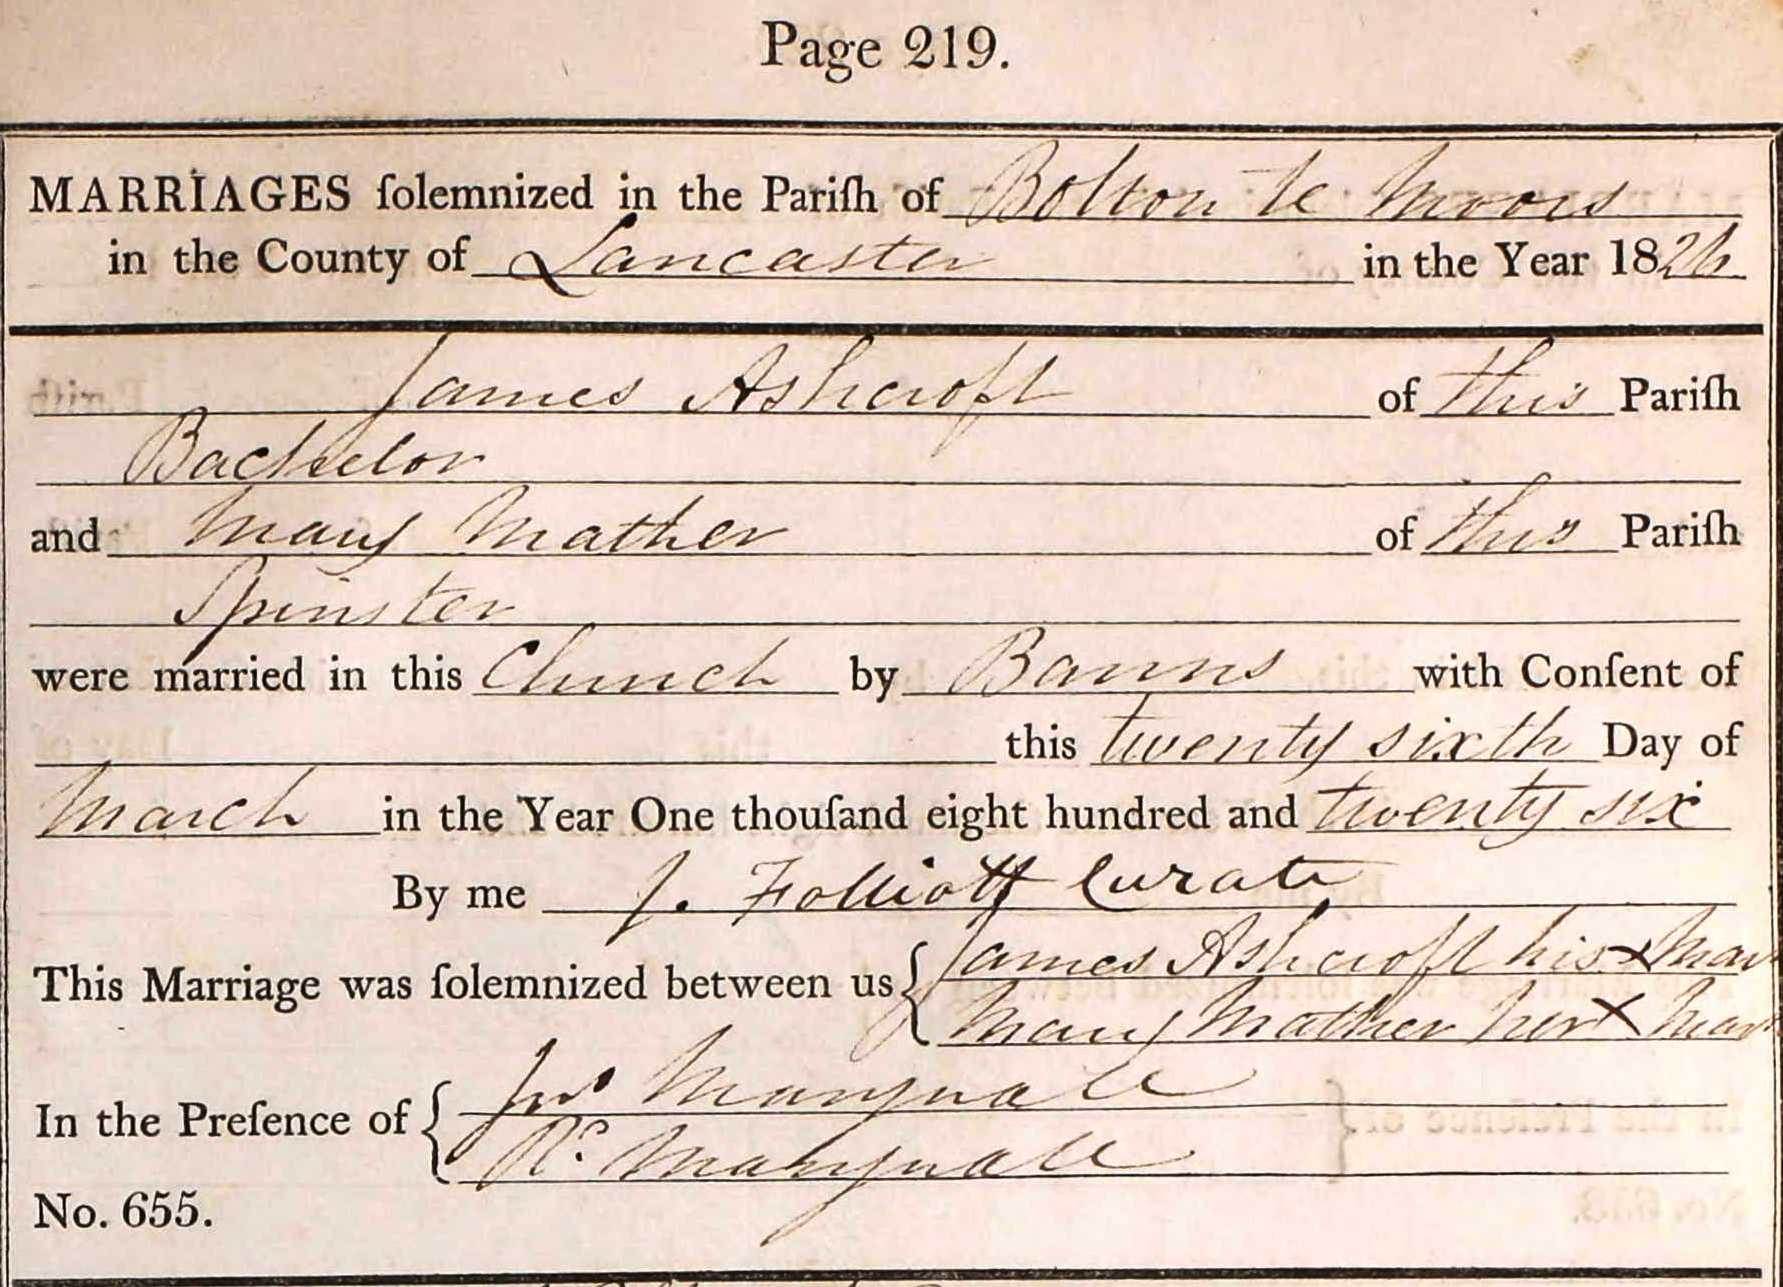 Page 219.
MARRIAGES ſolemnized in the Pariſh of Bolton le Moors
in the County of Lancaster in the Year 1826
James Ashcroft of this Pariſh
Bachelor
and Mary Mather of this Pariſh
Spinster
were married in this Church by Banns with Conſent of
this twenty sixth Day of
March in the Year One thouſand eight hundred and twenty six
By me J. Folliott Curate
This Marriage was ſolemnized between us { James Ashcroft his x Mark
Mary Mather her x Mark
In the Preſence of { Jno
Rd
No. 655.